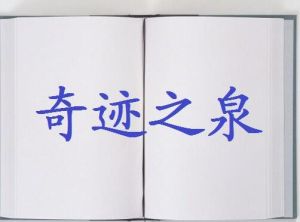 奇迹之泉